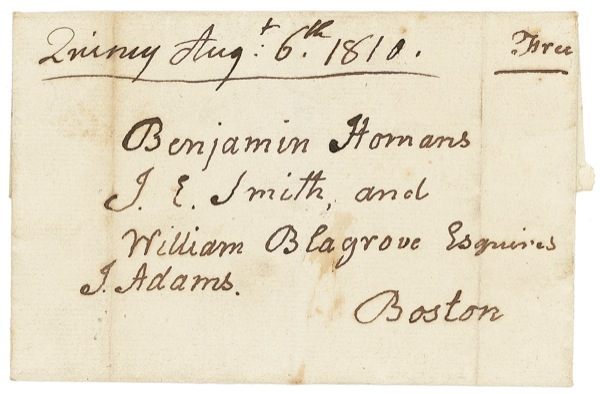 Quincy Augt. 6th. 1810.
Free
Benjamin Homans
J. E. Smith, and
William Blagrove Esquires
J. Adams.
Boston